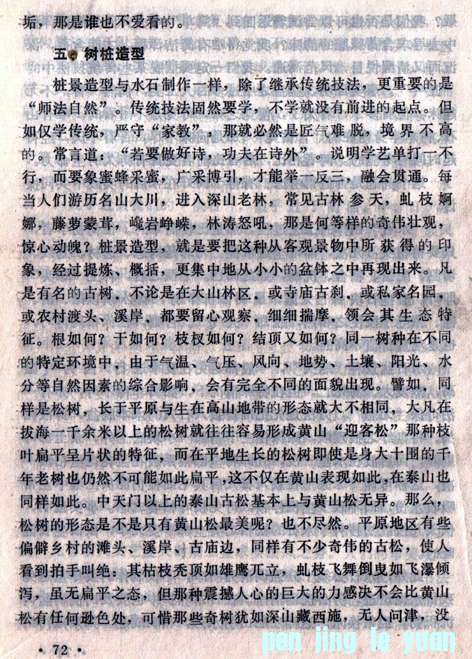 垢，那是谁也不爱看的。
五、树桩造型
桩景造型与水石制作一样，除了继承传统技法，更重要的是
“师法自然”。传统技法固然要学，不学就没有前进的起点。但
如仅学传统，严守“家教”，那就必然是匠气难脱，境界不高
的。常言道：“若要做好诗，功夫在诗外”。说明学艺单打一不
行，而要象蜜蜂采蜜，广采博引，才能举一反三，融会贯通。每
当人们游历名山大川，进入深山老林，常见古林参天，虬枝婀
娜，藤萝蒙茸，巉岩峥嵘，林涛怒吼，那是何等样的奇伟壮观，
惊心动魄？桩景造型，就是要把这种从客观景物中所获得的印
象，经过提炼、概括，更集中地从小小的盆钵之中再现出来。凡
是有名的古树，不论是在大山林区，或寺庙古刹，或私家名园，
或农村渡头、溪岸，都要留心观察，细细揣摩，领会其生态特
征。根如何？干如何？枝杈如何？结顶又如何？同一树种在不同
的特定环境中，由于气温、气压、风向、地势、土壤、阳光、水
分等自然因素的综合影响，会有完全不同的面貌出现。譬如，同
样是松树，长于平原与生在高山地带的形态就大不相同，大凡在
拔海一千余米以上的松树就往往容易形成黄山“迎客松”那种枝
叶扁平呈片状的特征，而在平地生长的松树即使是身大十围的千
年老树也仍然不可能如此扁平，这不仅在黄山表现如此，在泰山也
同样如此。中天门以上的泰山古松基本上与黄山松无异。那么，
松树的形态是不是只有黄山松最美呢？也不尽然。平原地区有些
偏僻乡村的滩头、溪岸、古庙边，同样有不少奇伟的古松，使人
看到拍手叫绝，其枯枝秃顶如雄鹰兀立，虬枝飞舞倒曳如飞瀑倾
泻，虽无扁平之态，但那种震撼人心的巨大的力感决不会比黄山
松有任何逊色处，可惜那些奇树犹如深山藏西施，无人问津，没
pen jing le yuan
·72·